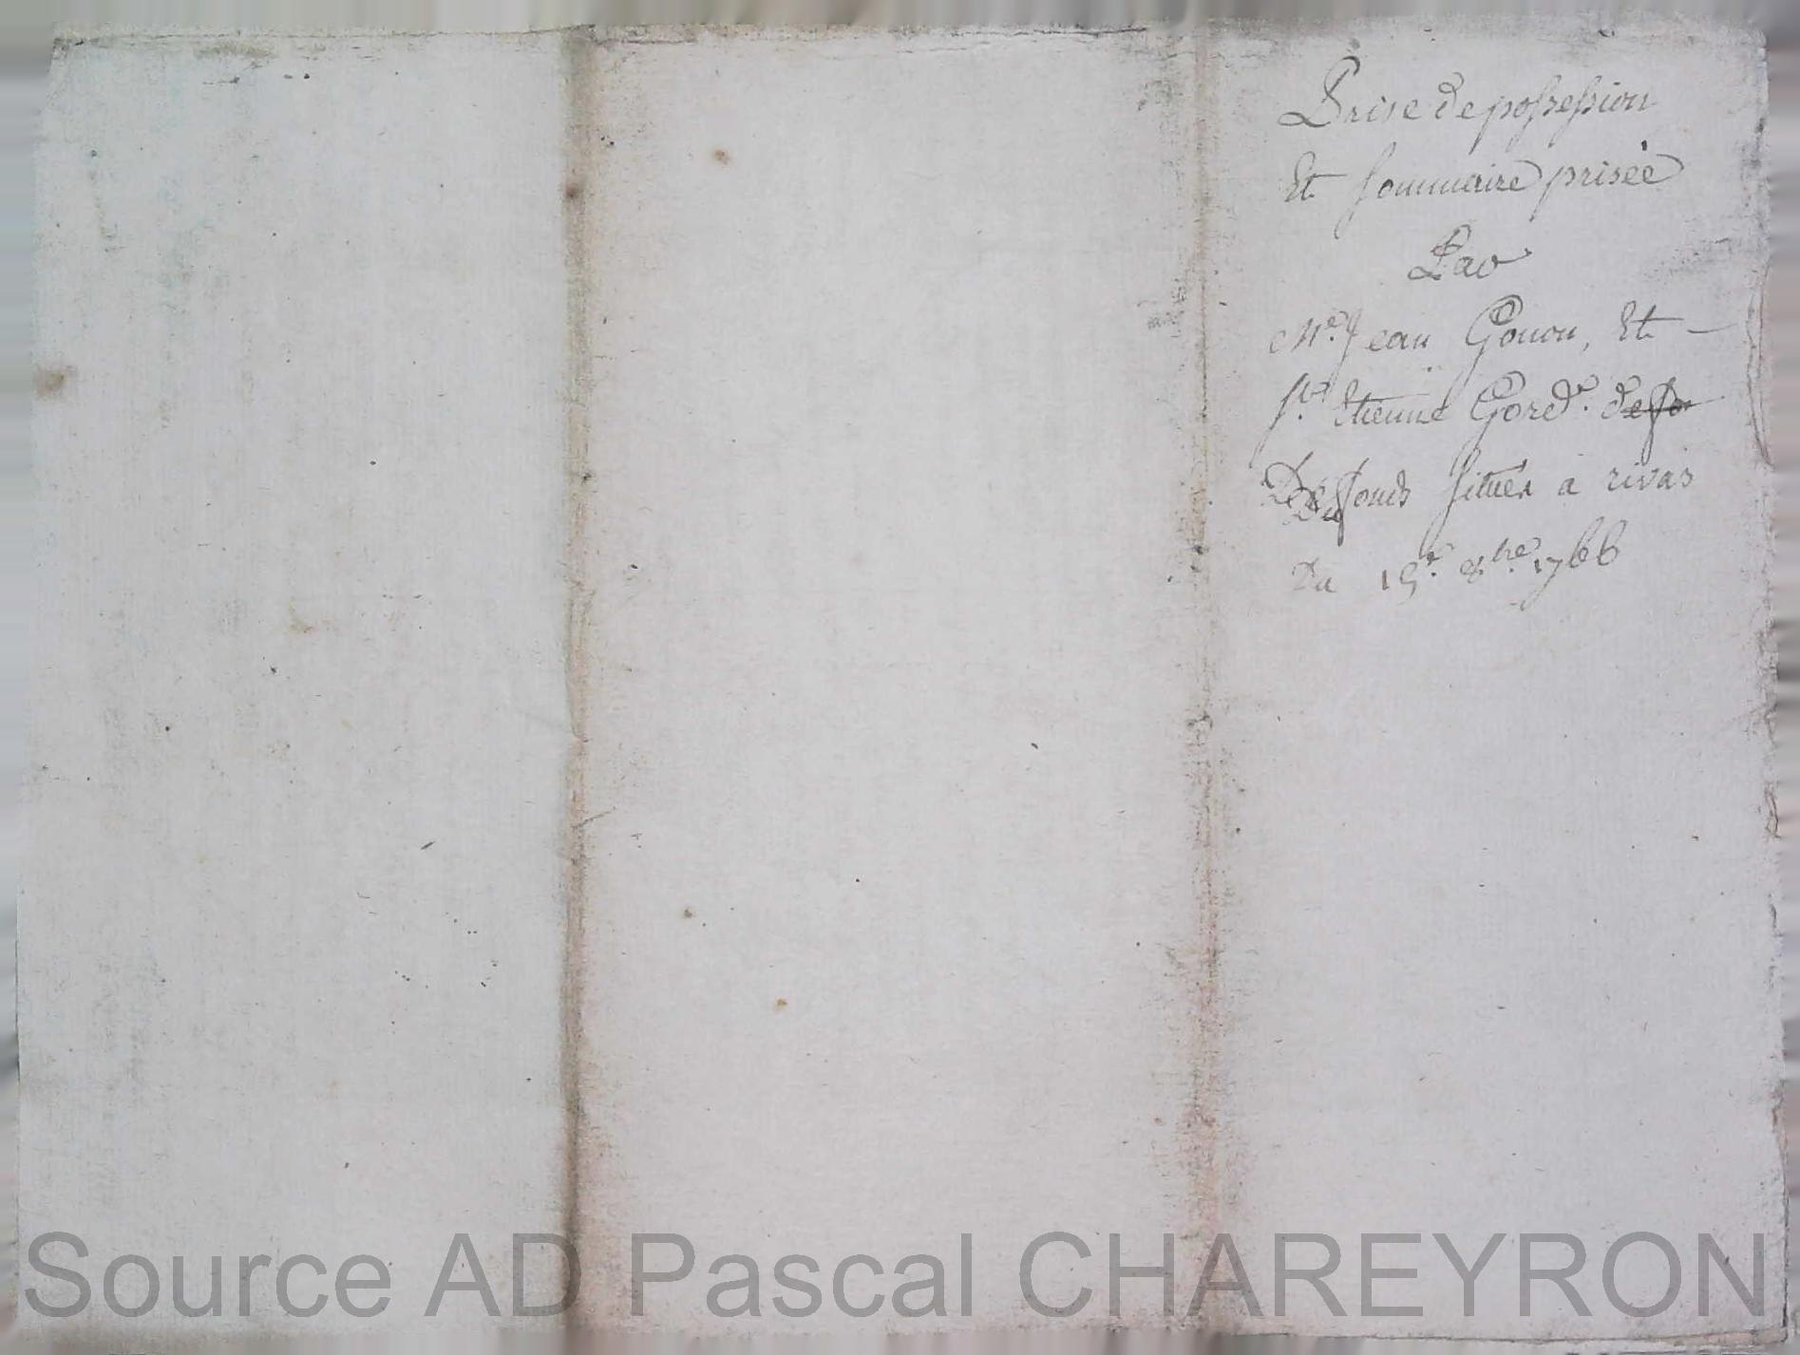 Prise de possession
Et sommaire prisée
Par
Me. Jean Gonon, Et
sr. Etienne
Des fonds situés a rivas
Du 15e. 8bre. 1766
Source AD Pascal CHAREYRON